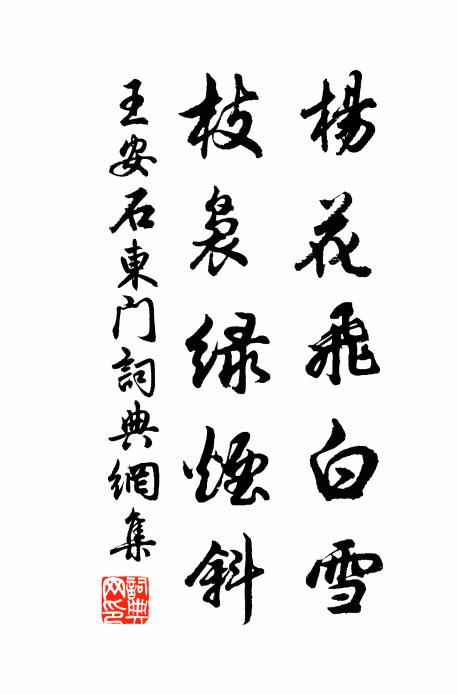 楊花飛白雪
枝裊綠煙斜
王安石東門詞典網集
詞典網印